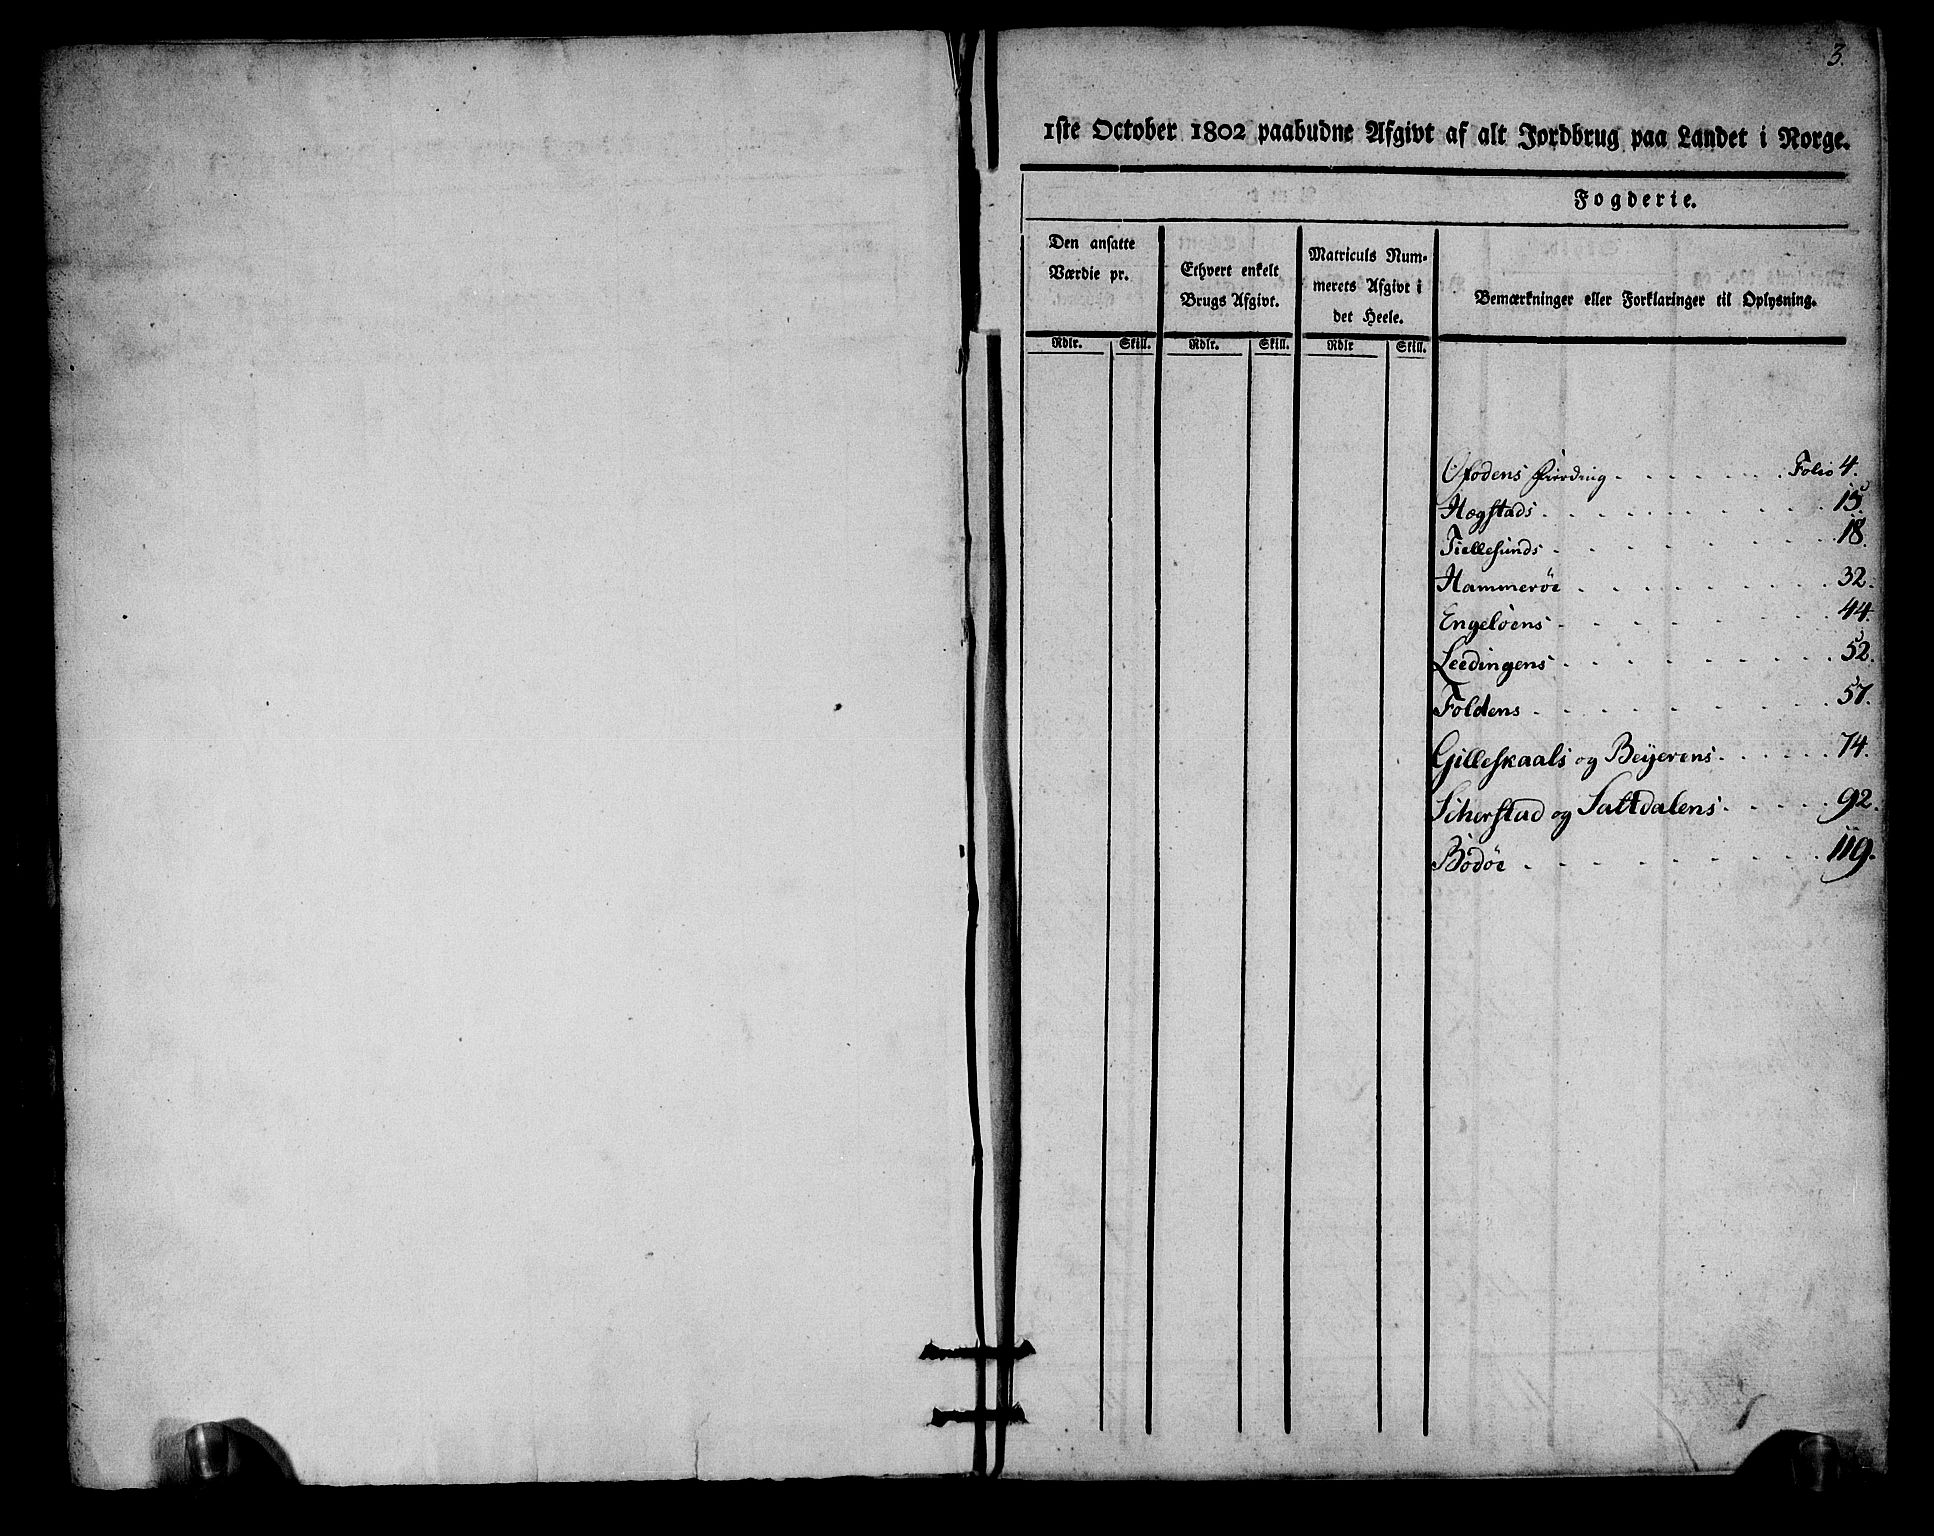 3.
1ste October 1802 paabudne Afgivt af alt Jordbrug paa Landet i Norge.
Fogderie.
Den ansatte
Værdie pr.
Ethvert enkelt
Brugs Afgivt.
Matriculs Num-
merets Afgivt i
det Heele.
Bemærkninger eller Forklaringer til Oplysning.
Rdlr. Skill. Rdlr. Skill. Rdlr Skill.
Ofodens Fierding . . . . . . . Folio 4.
Hegstads . . . . . . . . . . . 15.
Tiellesunds . . . . . . . . . 18.
Hammerøe . . . . . . . . 32.
Engeløens . . . . . . . . 44.
Leedingens . . . . . . . . . 52.
Foldens . . . . . . . . . 57.
Gilleskaals og Beijerens . . . . . . 74.
Scherstad og Saltdalens . . . . . 92.
Bodøe . . . . . . . . . 119.